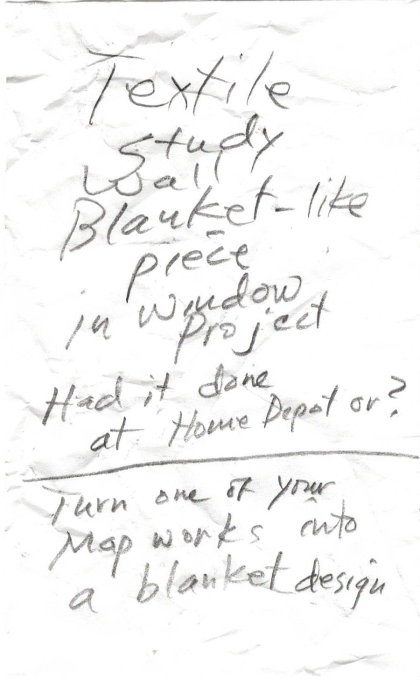 Textile
study
wall
Blanket-like
piece
in window
project
Had it done
at Home Depot or?
Turn one of your
Map works into
a blanket design